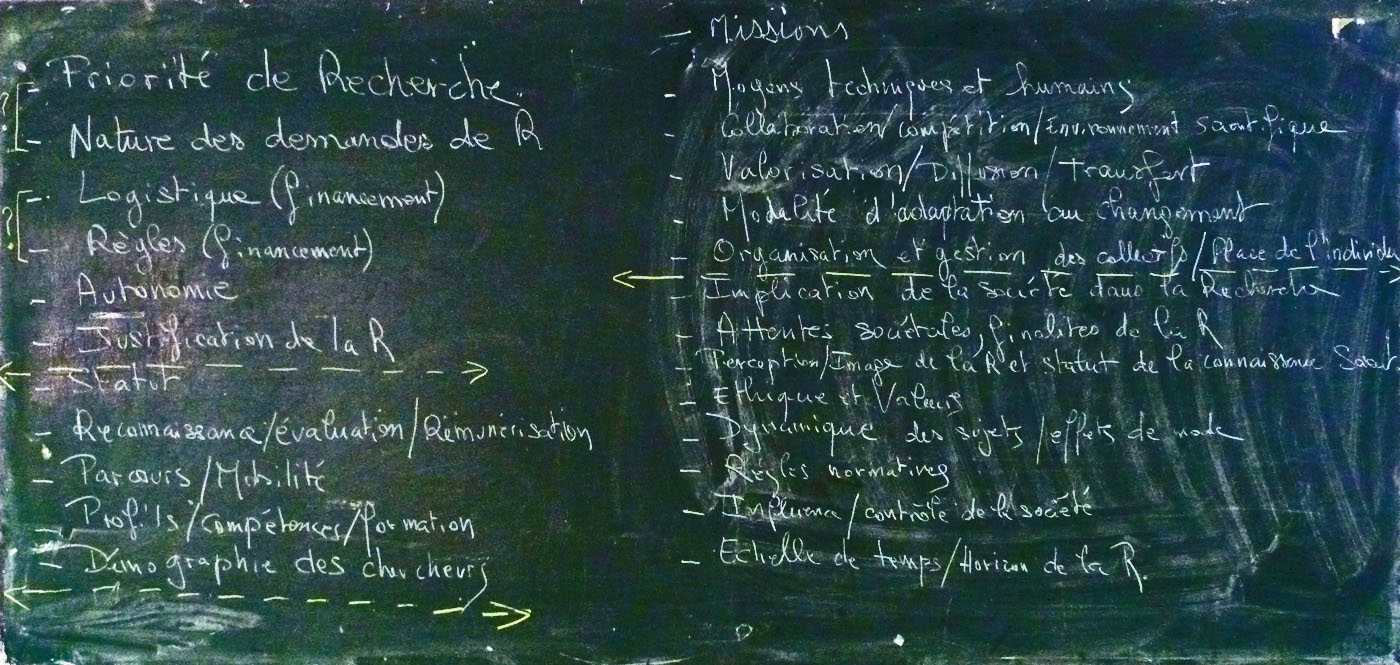 - Priorité de Recherche.
- Nature des demandes de R
- Logistique (financement)
- Règles (financement)
- Autonomie
- Justification de la R
- Statut
- Reconnaissance/évaluation/Rémunérisation
- Parcours/Mobilité
- Profils/compétences/formation
- Démographie des chercheurs
- Missions
- Moyens techniques et humains
- Collaboration/compétition/Environnement scientifique
- Valorisation/Diffusion/Transfert
- Modalité d'adaptation au changement
- Organisation et gestion des collectifs/Place de l'individu
- Implication de la société dans la Recherche
- Attentes sociétales, finalités de la R
- Perception/Image de la R et statut de la connaissance Scient.
- Ethique et Valeurs
- Dynamique des sujets/effets de mode
- Règles normatives
- Influence/contrôle de la société
- Echelle de temps/Horizon de la R.